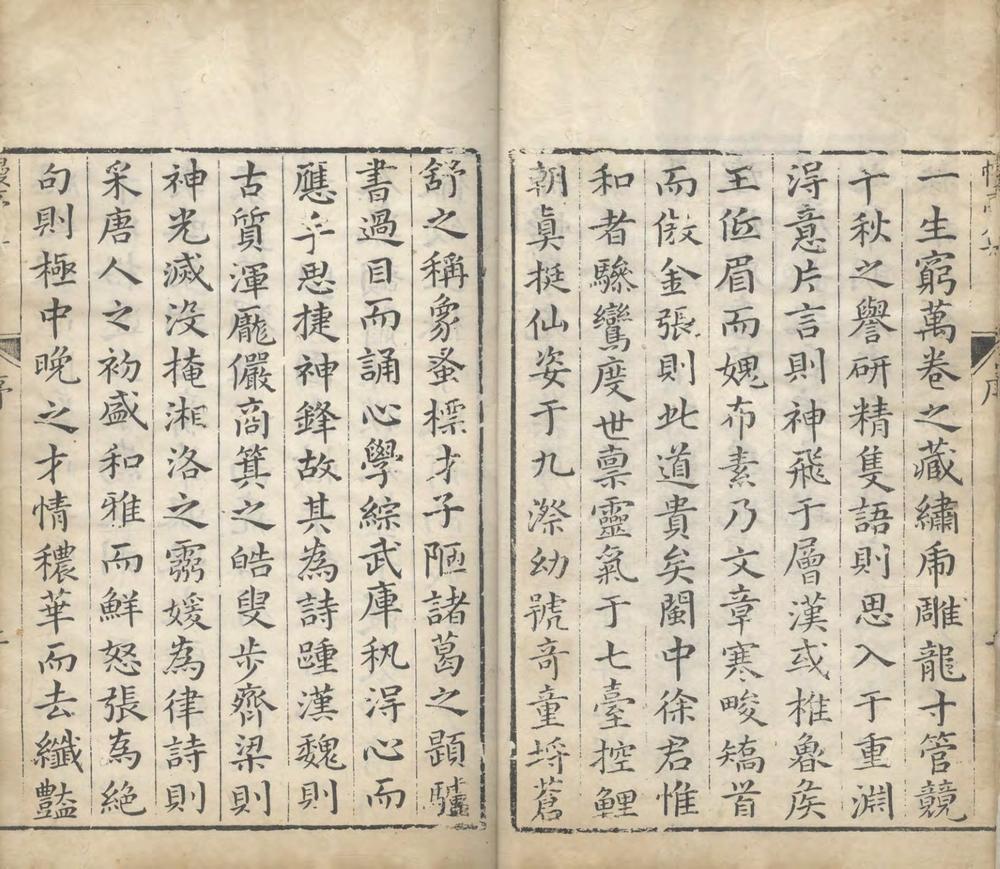 一生窮萬卷之藏繡虎雕龍寸管競
千秋之譽研精隻語則思入于重淵
淂意片言則神飛于層漢或椎魯矦
王低眉而媿布素乃文章寒畯矯首
而傲金張則此道貴矣閩中徐君惟
和者驂鸞度世禀靈氣于七臺控鯉
朝真挺仙姿于九漈幼號竒童埓蒼
舒之稱象蚤標才子陋諸葛之題驢
書過目而誦心學綜武庫秇淂心而
應手思捷神鋒故其為詩踵漢魏則
古質渾龐儼商箕之皓叟步齊梁則
神光滅没掩湘洛之靈媛為律詩則
采唐人之初盛和雅而鮮怒張為絶
句則極中晚之才情穠華而去纖豔
序